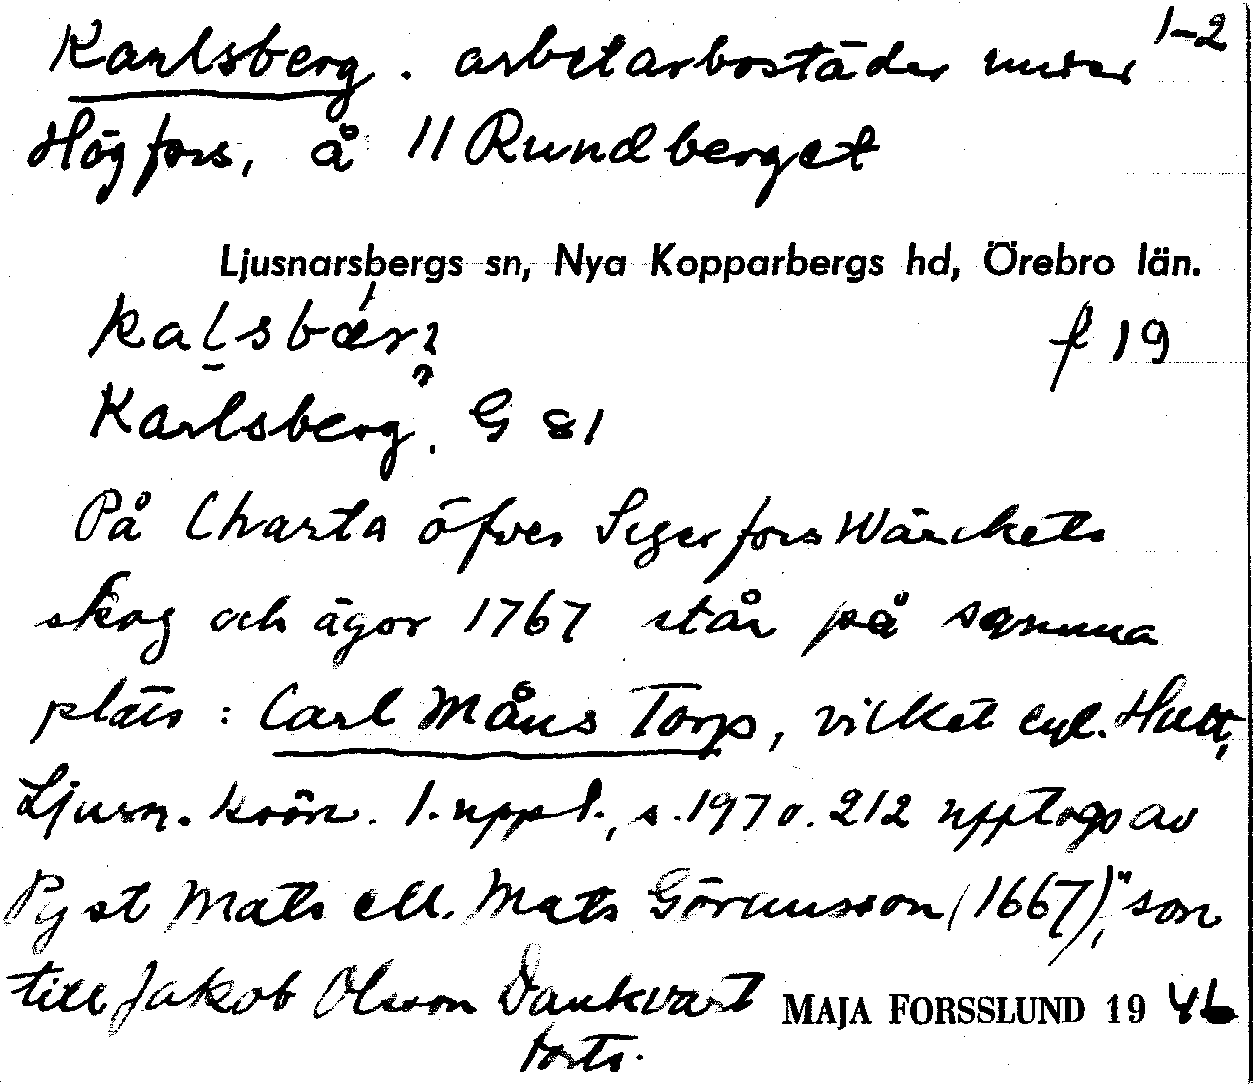 1-2
Karlsberg. arbetarbostäder under
Högfors, å 11 Rundberget
Ljusnarsbergs sn, Nya Kopparbergs hd, Örebro län.
kalsbær?
f 19
Karlsberg. G 81
På Charta öfver Segerfors Wärckets
skog och ägor 1767 står på samma
plats: Carl Måns Torp, vilket enl. Hult,
Ljusn. krön. 1. uppl., s. 197 o. 212 upptogs av
Pyst Mats ell. Mats Göransson (1667), "son
till Jakob Olsson Dankvart
MAJA FORSSLUND 19 46
forts.